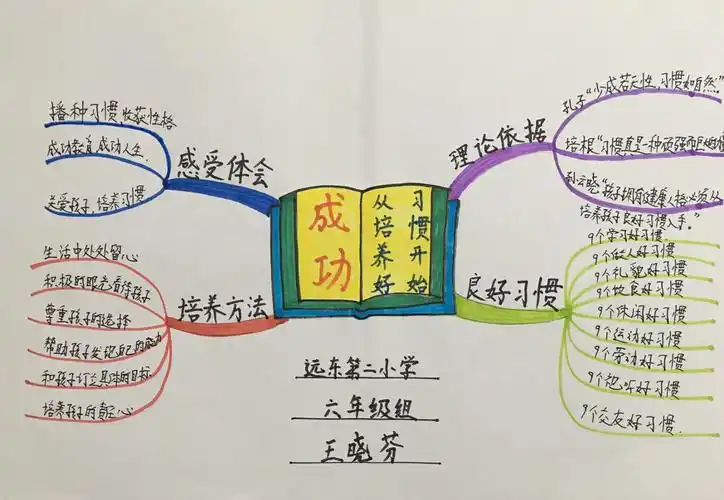 成功
从培养好
习惯开始
感受体会
播种习惯,收获性格
成功教育,成功人生.
关爱孩子,培养习惯
理论依据
孔子"少成若天性,习惯如自然"
培根"习惯真是一种顽强而巨大的
孙云晓"孩子拥有健康人格必须从
培养孩子良好习惯入手."
培养方法
生活中处处留心
积极的眼光看待孩子
尊重孩子的选择
帮助孩子发现自己的能力
和孩子订立具体的目标.
培养孩子的责任心
良好习惯
9个学习好习惯.
9个做人好习惯
9个礼貌好习惯
9个饮食好习惯
9个休闲好习惯
9个运动好习惯
9个劳动好习惯
9个 好习惯
9个交友好习惯.
远东第二小学
六年级组
王晓芬